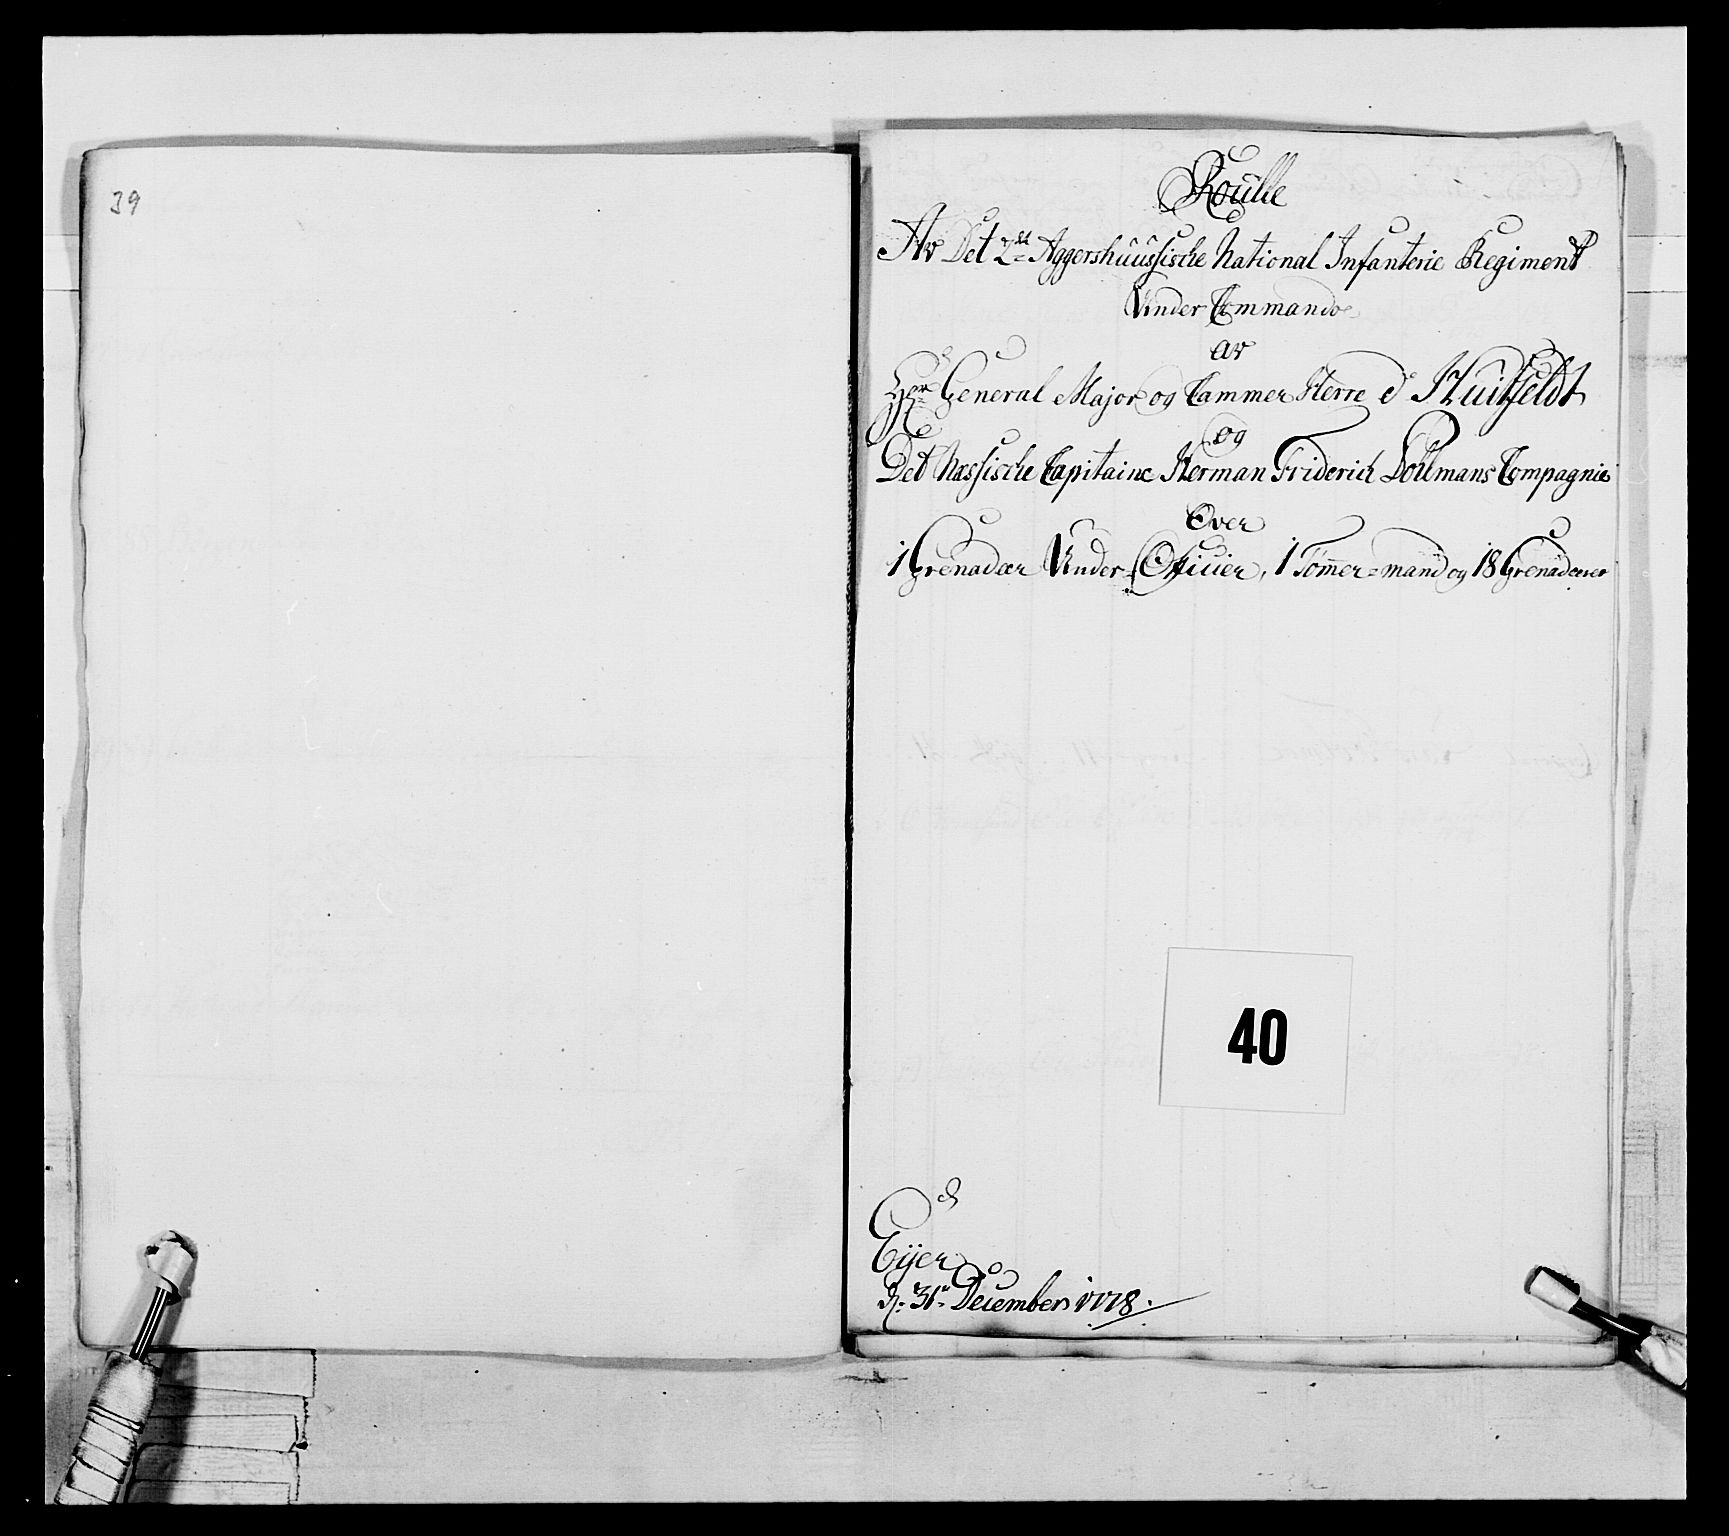 39
Roulle
Av Det 2det Aggershuusische National Infanterie Regiment
Under Commando
av
Hr General Major og Cammer Herre d' Huitfeldt
og
Det Næssische Capitaine Herman Friderich Dollmans Compagnie
Over
1 Grenadær Under-Officier, 1 Tømmer=mand og 18 Grenadærer
40
Eijer
d: 31te December 1778.